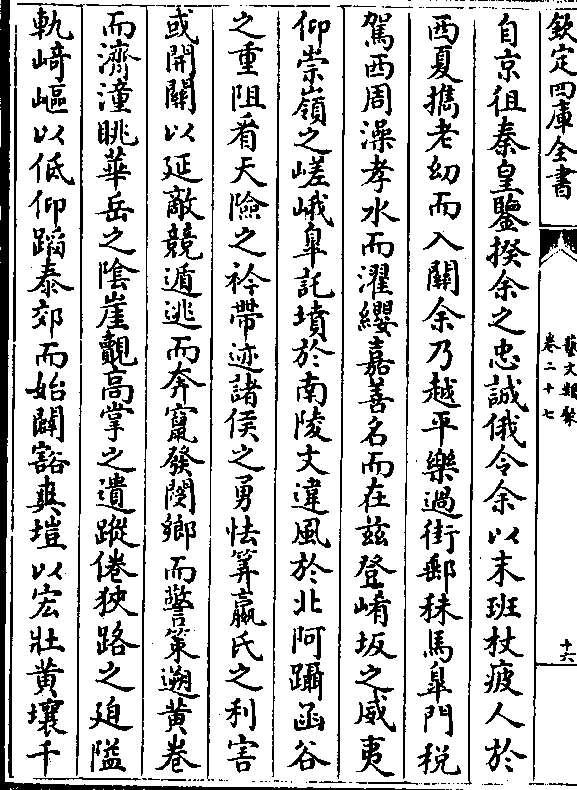 欽定四庫全書
藝文類聚
卷二十七
十六
自京徂秦皇鑒揆余之忠誠俄令余以末班杖疲人於
西夏擕老幼而入關余乃越平樂過街郵秣馬臯門税
駕西周澡孝水而濯纓嘉善名而在兹登崤坂之威夷
仰崇嶺之嵯峨臯託墳於南陵文違風於北阿躡函谷
之重阻看天險之衿帶迹諸侯之勇怯筭嬴氏之利害
或開關以延敵競遁逃而奔竄發閿鄉而警策遡黄巷
而濟潼眺華岳之陰崖覿高掌之遺蹤倦狹路之廹隘
軌﨑嶇以低仰蹈秦郊而始闢豁爽塏以宏壯黄壤千